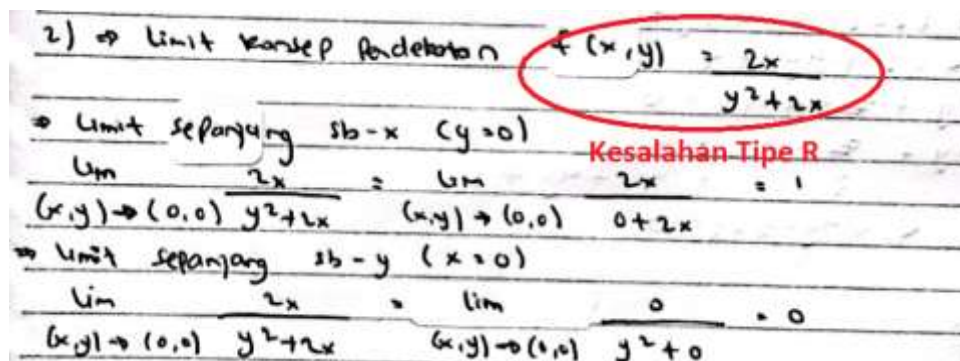 2) ⇒ Limit konsep Pendekatan f(x,y) = 2x / y²+2x
Kesalahan Tipe R
⇒ Limit sepanjang sb-x (y=0)
lim (x,y)→(0,0) 2x / y²+2x = lim (x,y)→(0,0) 2x / 0+2x = 1
⇒ limit sepanjang sb-y (x=0)
lim (x,y)→(0,0) 2x / y²+2x = lim (x,y)→(0,0) 0 / y²+0 = 0